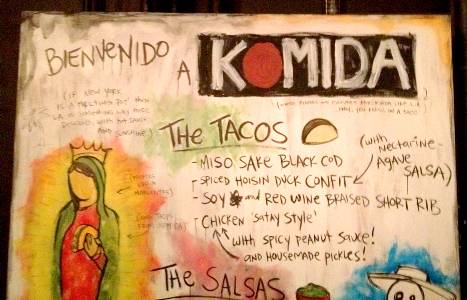 BIENVENIDO
A KOMIDA
(IF NEW YORK
IS A "MELTING POT" THEN
LA IS SOMETHING WAY MORE
WITH HOT SAUCE
AND SUNSHINE)
THE TACOS
-MISO SAKE BLACK COD
-SPICED HOISIN DUCK CONFIT
(with
NECTARINE-
AGAVE
SALSA)
-SOY and RED WINE BRAISED SHORT RIB
-CHICKEN 'SATAY STYLE'
with SPICY PEANUT SAUCE!
AND HOUSEMADE PICKLES!
THE SALSAS